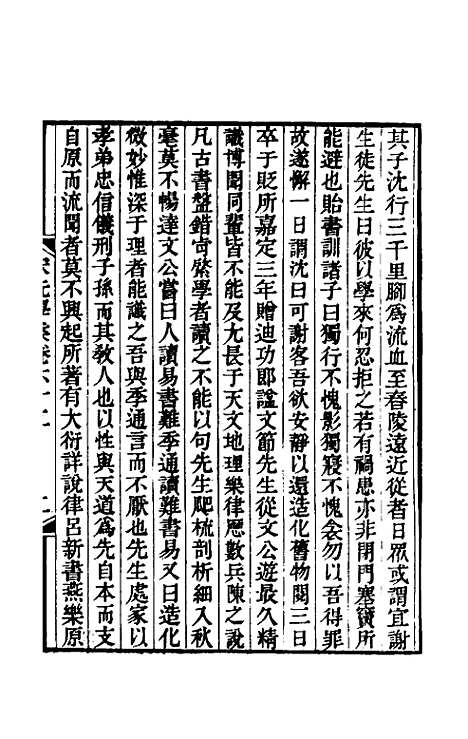 其子沈行三千里腳爲流血至舂陵遠近從者日眾或謂宜謝
生徒先生曰彼以學來何忍拒之若有禍患亦非閉門塞竇所
能避也貽書訓諸子曰獨行不愧影獨寢不愧衾勿以吾得罪
故遂懈一日謂沈曰可謝客吾欲安靜以還造化舊物閱三日
卒于貶所嘉定三年贈迪功郎諡文節先生從文公遊最久精
識博聞同輩皆不能及尤長于天文地理樂律厯數兵陳之說
凡古書盤錯肯綮學者讀之不能以句先生爬梳剖析細入秋
毫莫不暢達文公嘗曰人讀易書難季通讀難書易又曰造化
微妙惟深于理者能識之吾與季通言而不厭也先生處家以
孝弟忠信儀刑子孫而其敎人也以性與天道爲先自本而支
自原而流聞者莫不興起所著有大衍詳說律呂新書燕樂原
宋元學案卷六十二 二